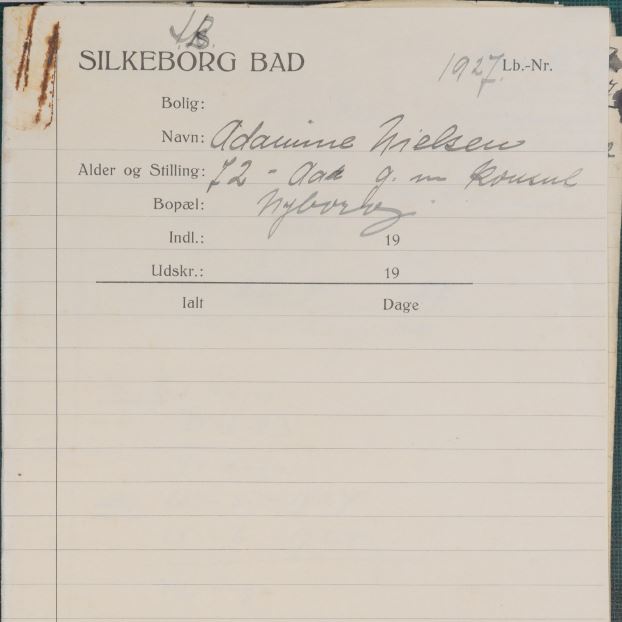 SILKEBORG BAD
1927 Lb.-Nr.
Bolig:
Navn: Adamine Nielsen
Alder og Stilling: 72 - Aar g. m Konsul
Bopæl: Nyborg.
Indl.: 19
Udskr.: 19
Ialt Dage